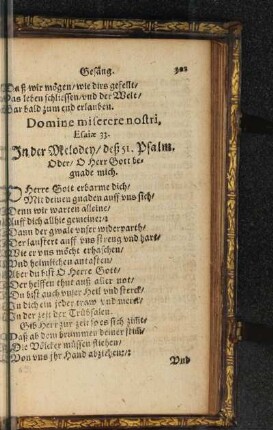 Gesäng. 302
Daß wir mögen/ wie dirs gefellt/
Das leben schliessen/ vnd der Welt/
Gar bald zum end erlauben.
Domine miserere nostri,
Esaiæ 33.
In der Melodey/ deß 51. Psalm.
Oder/ O Herr Gott be-
gnade mich.
O Herre Gott erbarme dich/
Mit deinen gnaden auff vns sich/
Denn wir warten alleine/
Auff dich allhie gemeine:/:
Dann der gwalt vnser widerparth/
Der lauffert auff vns streng vnd hart/
Wie er vns möcht erhaschen/
Vnd heimlichen antasten/
Aber du bist O Herre Gott/
Der helffen thut auß aller not/
Du bist auch vnser Heil vnd sterck/
In dich ein jeder traw vnd merck/
In der zeit der Trübsalen.
Gib Herr zur zeit
Daß ab dem brummen deiner stim/
Die Völcker müssen fliehen/
Von vns jhr Hand abziehen:/:
Vnd